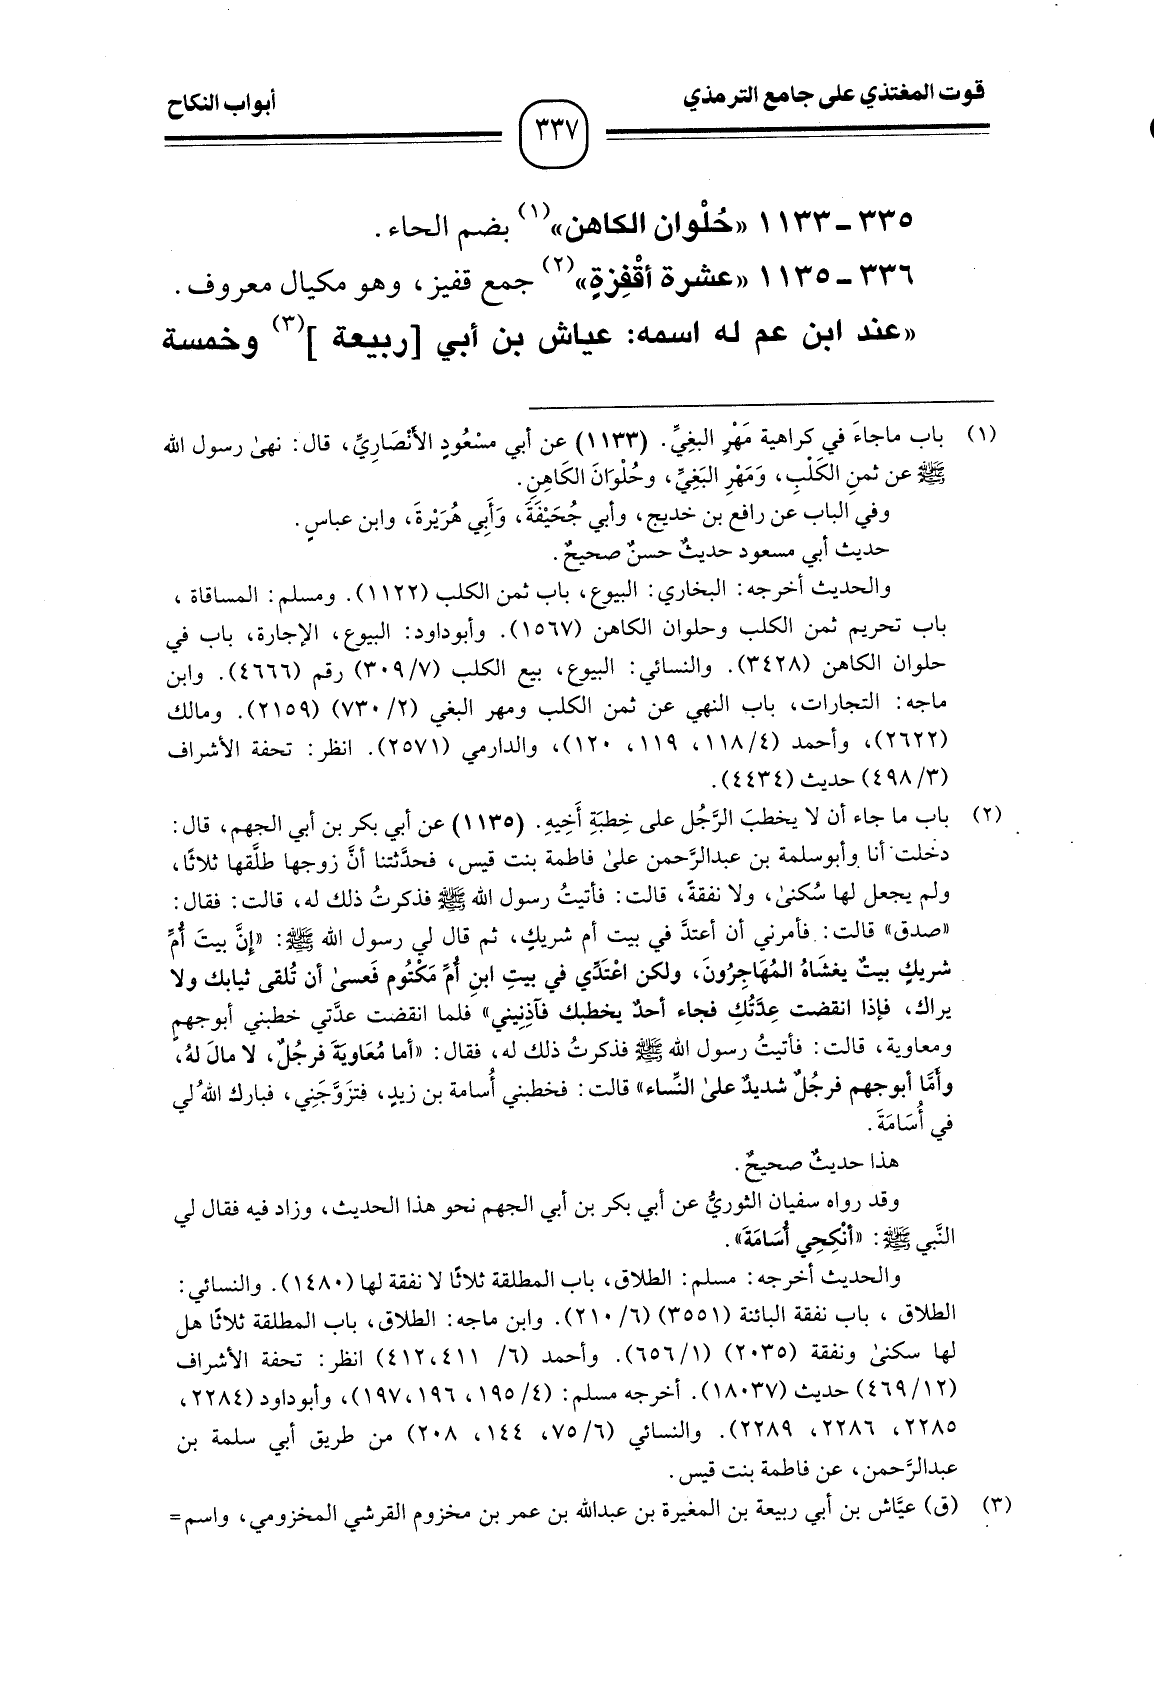 قوت المغتذي على جامع الترمذي
٣٣٧
أبواب النكاح
٣٣٥ـ١١٣٣ «حُلْوان الكاهن»(١) بضم الحاء.
٣٣٦ـ١١٣٥ «عشرة أقْفِزةٍ»(٢) جمع قفيز، وهو مكيال معروف.
«عند ابن عم له اسمه: عياش بن أبي [ربيعة ](٣) وخمسة
(١) باب ماجاءَ في كراهية مَهْرِ البغِيِّ. (١١٣٣) عن أبي مسْعُودٍ الأنْصَارِيِّ، قال: نهىٰ رسول الله
ﷺ عن ثمنِ الكَلْبِ، وَمَهْرِ البَغِيِّ، وحُلْوَانَ الكَاهِنِ.
وفي الباب عن رافع بن خديج، وأبي جُحَيْفَةَ، وَأَبِي هُرَيْرةَ، وابن عباسٍ.
حديث أبي مسعود حديثٌ حسنٌ صحيحٌ.
والحديث أخرجه: البخاري: البيوع، باب ثمن الكلب (١١٢٢). ومسلم: المساقاة ،
باب تحريم ثمن الكلب وحلوان الكاهن (١٥٦٧). وأبوداود: البيوع، الإجارة، باب في
حلوان الكاهن (٣٤٢٨). والنسائي: البيوع، بيع الكلب (٣٠٩/٧) رقم (٤٦٦٦). وابن
ماجه: التجارات، باب النهي عن ثمن الكلب ومهر البغي (٧٣٠/٢) (٢١٥٩). ومالك
(٢٦٢٢)، وأحمد (١١٨/٤، ١١٩، ١٢٠)، والدارمي (٢٥٧١). انظر: تحفة الأشراف
(٤٩٨/٣) حديث (٤٤٣٤).
(٢) باب ما جاء أن لا يخطبَ الرَّجُل على خِطبَةِ أَخِيهِ. (١١٣٥) عن أبي بكر بن أبي الجهم، قال:
دخلت أنا وأبوسلمة بن عبدالرَّحمن علىٰ فاطمة بنت قيس، فحدَّثتنا أنَّ زوجها طلَّقها ثلاثًا،
ولم يجعل لها سُكنىٰ، ولا نفقةً، قالت: فأتيتُ رسول الله ﷺ فذكرتُ ذلك له، قالت: فقال:
«صدق» قالت: فأمرني أن أعتدَّ في بيت أم شريكٍ، ثم قال لي رسول الله ﷺ: «إِنَّ بيتَ أُمِّ
شريكٍ بيتٌ يغشَاهُ المُهَاجِرُونَ، ولكن اعْتَدِّي في بيتِ ابنِ أُمِّ مَكْتُوم فَعسىٰ أن تُلقى ثيابك ولا
يراك، فإذا انقضت عِدَّتُكِ فجاء أحدٌ يخطبك فآذِنِيني» فلما انقضت عدَّتي خطبني أبوجهمٍ
ومعاوية، قالت: فأتيتُ رسول الله ﷺ فذكرتُ ذلك له، فقال: «أما مُعَاوِيَةَ فرجُلٌ، لا مالَ لهُ،
وأَمَّا أبوجهم فرجُلٌ شديدٌ علىٰ النِّساء» قالت: فخطبني أُسامة بن زيدٍ، فتزَوَّجَنِي، فبارك اللهُ لي
في أُسَامَةَ.
هذا حديثٌ صحيحٌ.
وقد رواه سفيان الثوريُّ عن أبي بكر بن أبي الجهم نحو هذا الحديث، وزاد فيه فقال لي
النَّبي ﷺ: «أنْكِحِي أُسَامَةَ».
والحديث أخرجه: مسلم: الطلاق، باب المطلقة ثلاثًا لا نفقة لها (١٤٨٠). والنسائي:
الطلاق ، باب نفقة البائنة (٣٥٥١) (٢١٠/٦). وابن ماجه: الطلاق، باب المطلقة ثلاثًا هل
لها سكنىٰ ونفقة (٢٠٣٥) (٦٥٦/١). وأحمد (٦/ ٤١٢،٤١١) انظر: تحفة الأشراف
(٤٦٩/١٢) حديث (١٨٠٣٧). أخرجه مسلم: (١٩٥/٤، ١٩٧،١٩٦)، وأبوداود (٢٢٨٤،
٢٢٨٥، ٢٢٨٦، ٢٢٨٩). والنسائي (٧٥/٦، ١٤٤، ٢٠٨) من طريق أبي سلمة بن
عبدالرَّحمن، عن فاطمة بنت قيس.
(٣) (ق) عيَّاش بن أبي ربيعة بن المغيرة بن عبدالله بن عمر بن مخزوم القرشي المخزومي، واسم=